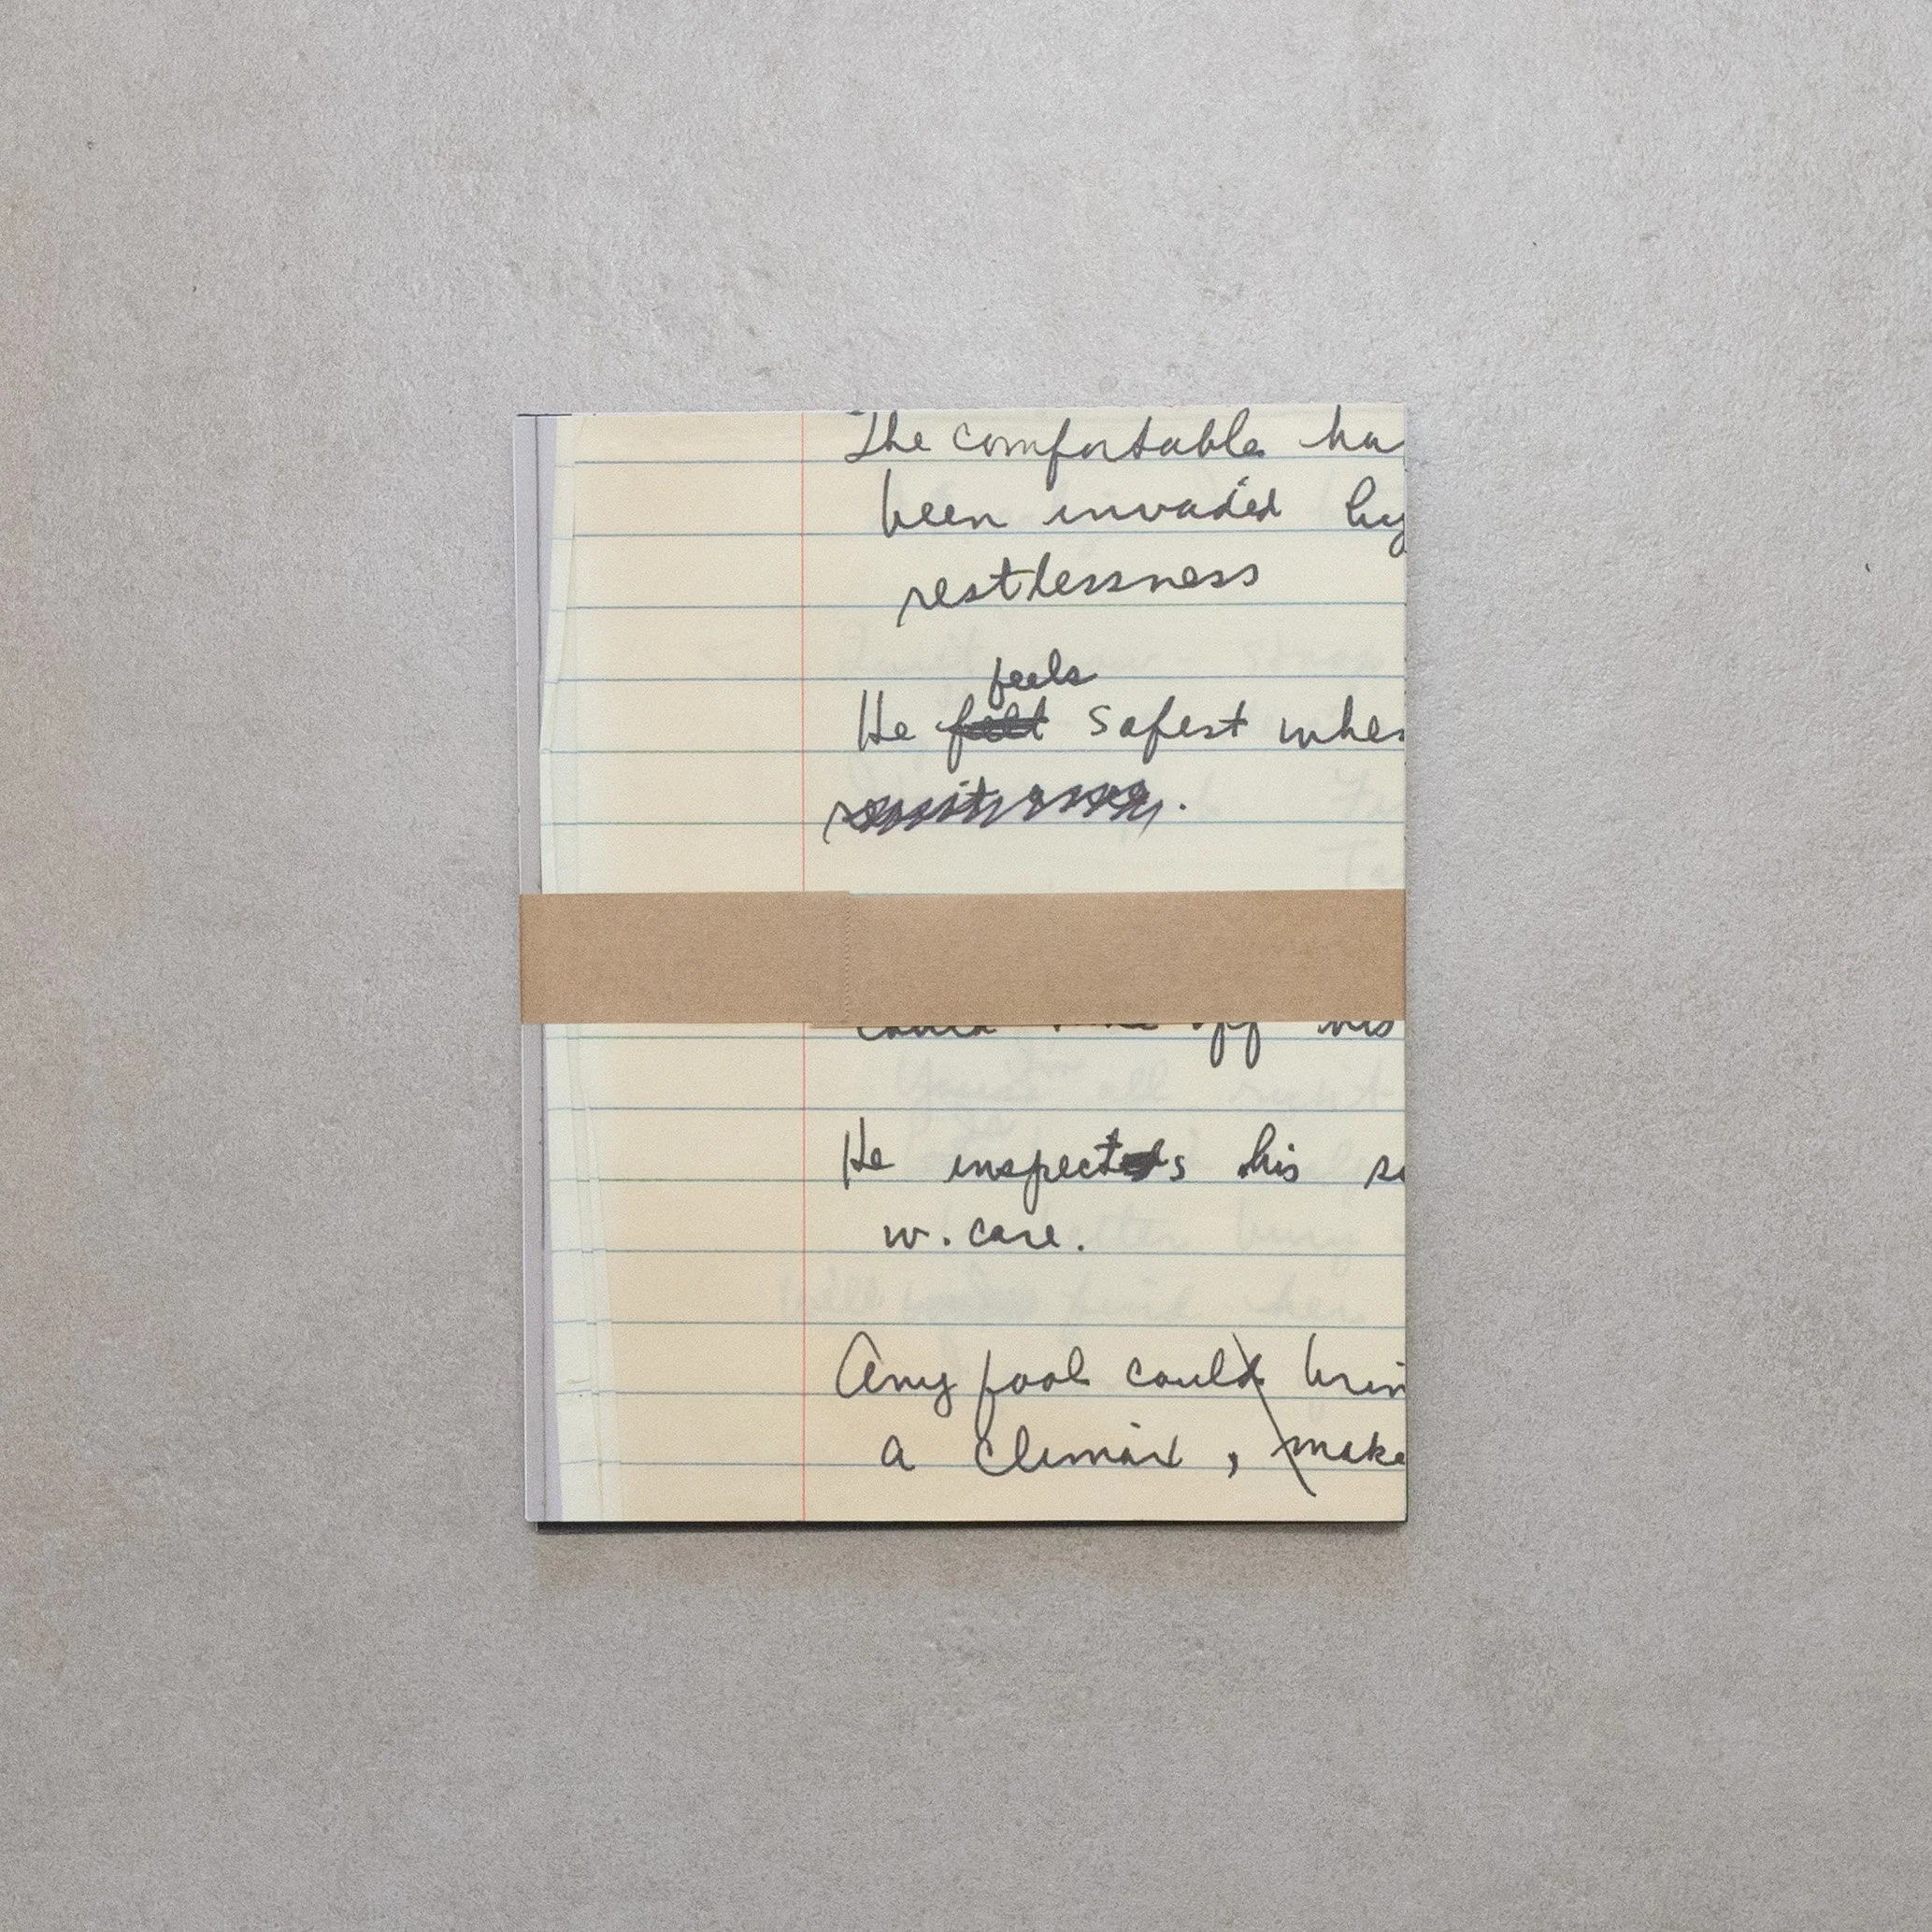 The comfortable ha
been invaded by
restlessness
feels
He felt safest when
could off his
He inspects his
w. care.
Any fool could brin
a climax, make